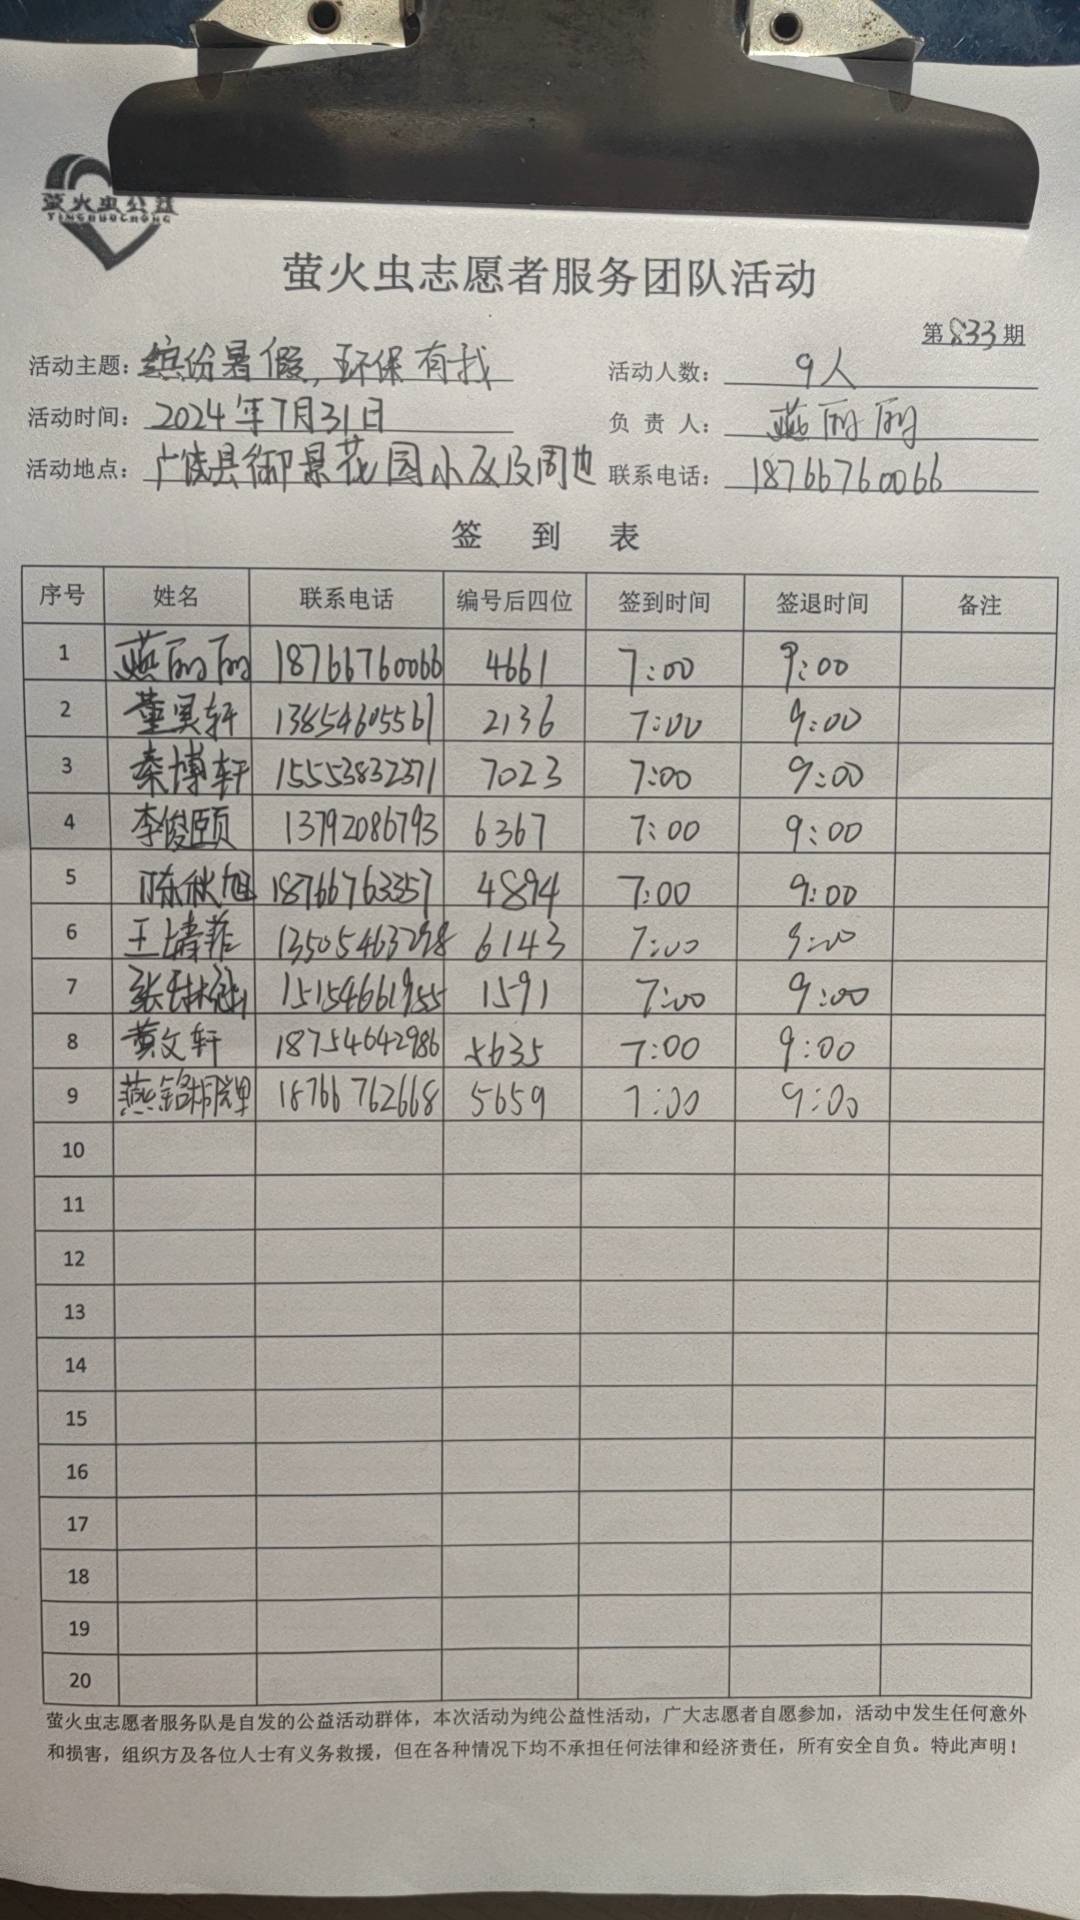 萤火虫公益
YINGHUOCHONG
萤火虫志愿者服务团队活动
第833期
活动主题：缤纷暑假，环保有我 活动人数：9人
活动时间：2024年7月31日 负责人：燕丽丽
活动地点：广饶县御景花园小区及周边 联系电话：18766760066
签到表
序号 姓名 联系电话 编号后四位 签到时间 签退时间 备注
1 燕丽丽 18766760066 4661 7:00 9:00
2 董昊轩 13854605561 2136 7:00 9:00
3 秦博轩 15553832371 7023 7:00 9:00
4 李俊颐 13792086793 6367 7:00 9:00
5 陈秋旭 18766763357 4894 7:00 9:00
6 王婧菲 13505463298 6143 7:00 9:00
7 15154661955 1591 7:00 9:00
8 黄文轩 18754642986 5635 7:00 9:00
9 18766762668 5659 7:00 9:00
10
11
12
13
14
15
16
17
18
19
20
萤火虫志愿者服务队是自发的公益活动群体，本次活动为纯公益性活动，广大志愿者自愿参加，活动中发生任何意外
和损害，组织方及各位人士有义务救援，但在各种情况下均不承担任何法律和经济责任，所有安全自负。特此声明！